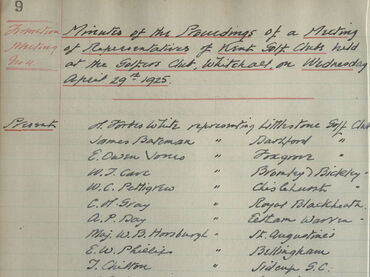 9
Formation
Meeting
No 4
Minutes of the Proceedings of a Meeting
of Representatives of Kent Golf Clubs held
at the Golfers Club, Whitehall, on Wednesday
April 29th 1925.
Present
H. Forbes White representing Littlestone Golf Club
James Bateman " Dartford "
E. Owen Jones " Foxgrove "
W. T. Care " Bromley & Bickley "
W. C. Pettigrew " Chislehurst "
C. H. Gray " Royal Blackheath "
A. P. Day " Eltham Warren "
Maj. W. B. Horsburgh " St. Augustines
E. W. Phillips " Bellingham
T. Chilton " Sidcup G.C.